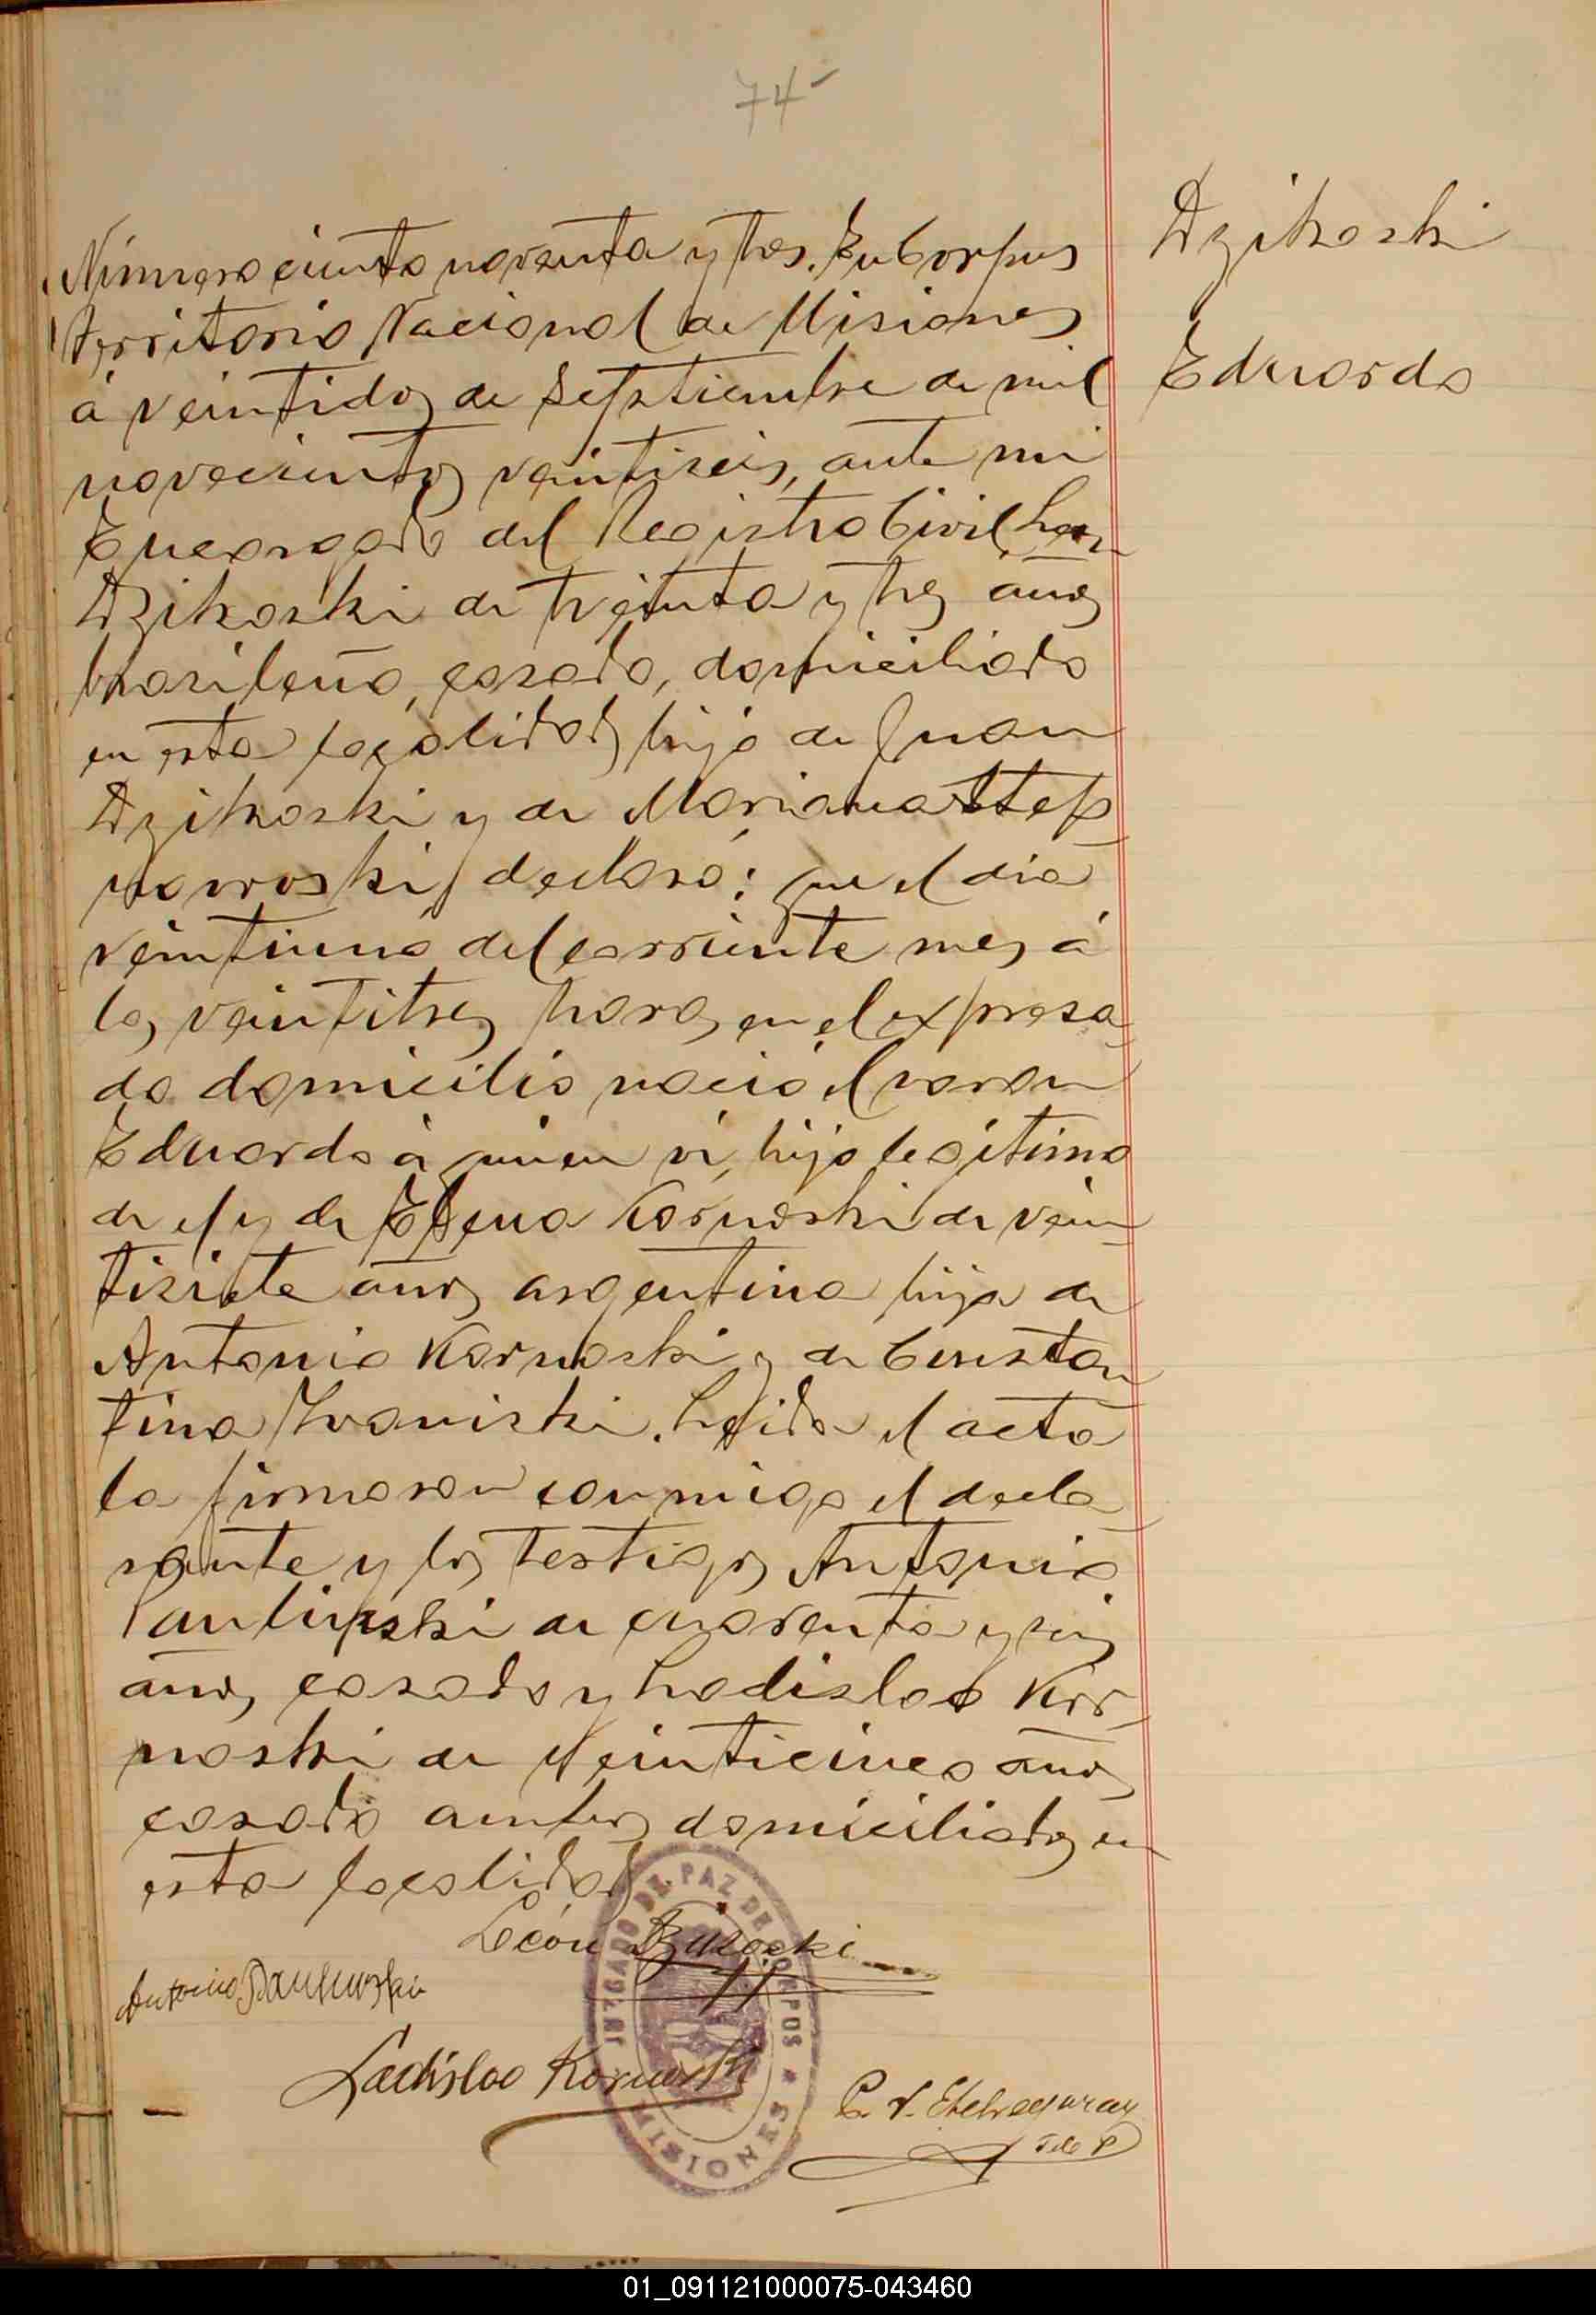 74
Dzikoski
Eduardo
Número ciento noventa y tres. En Corpus
Territorio Nacional de Misiones
á veintidos de Septiembre de mil
novecientos veintiseis, ante mi
Encargado del Registro Civil, Leon
Dzikoski de treinta y tres años
brasileño, casado, domiciliado
en esta localidad, hijo de Juan
Dzikoski y de Mariana Step
naroski, declaró: que el dia
veintiuno del corriente mes á
las veintitres horas en el expresa
do domicilio nació el varon
Eduardo á quien ví, hijo legítimo
de el y de Elena Kornoski de vein
tisiete años argentina, hija de
Antonio Kornoski y de Constan
tina Ivaniski. Leida el acta
la firmaron conmigo el decla
rante y los testigos Antonio
Paulinski de cuarenta y seis
años, casado y Ladislao Kor
noski de veinticinco años
casado ambos domiciliados en
esta localidad
León Dzikoski
Antonio
Ladislao Kornoski
Etchegaray
J de P
JUZGADO DE PAZ DE CORPUS * MISIONES *
01_091121000075-043460